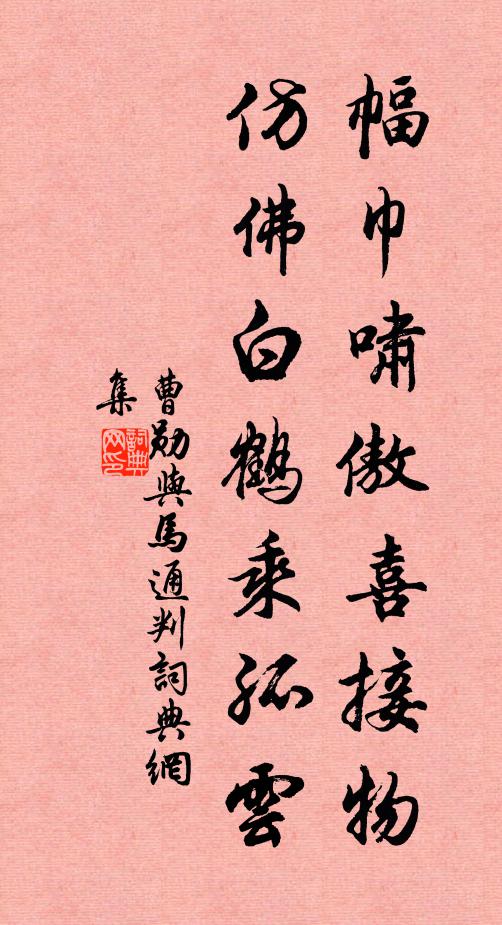 幅巾啸傲喜接物
仿佛白鶴乘孤雲
曹勛與馬通判詞典網
集
詞典网印